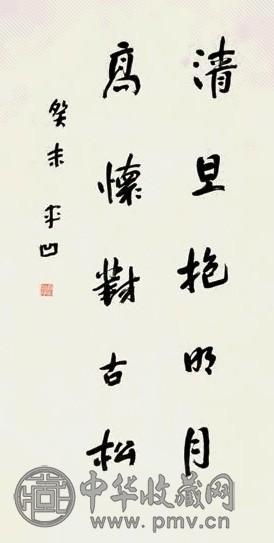 清旦抱明月
高懷對古松
癸未 平凹
中华收藏网
www.pmv.cn